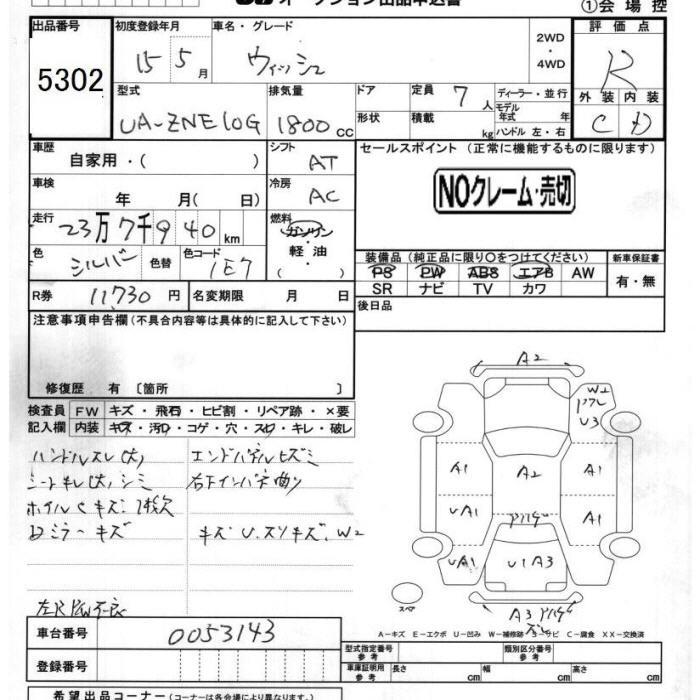 オークション出品申込書
①会場控
出品番号
5302
初度登録年月
15 5 月
車名・グレード
ウィッシュ
2WD
・
4WD
評価点
R
外装 内装
C D
型式
UA-ZNE10G
排気量
1800 CC
ドア
形状
定員 7 人
積載 kg
ディーラー・並行
モデル
年式 年
ハンドル 左・右
車歴
自家用・( )
シフト
AT
セールスポイント (正常に機能するものに限ります)
NOクレーム・売切
車検
年 月( 日)
冷房
AC
走行
23万7千940 km
燃料
ガソリン
軽・油
( ・ )
色
シルバー
色替
色コード
1E7
装備品 (純正品に限り○をつけてください)
PS PW ABS エアB AW
SR ナビ TV カワ
新車保証書
有・無
R券 11,730 円
名変期限 月 日
後日品
注意事項申告欄(不具合内容等は具体的に記入して下さい)
修復歴 有 〔箇所 〕
検査員 FW キズ・飛石・ヒビ割・リペア跡・×要
記入欄 内装 キズ・汚D・コゲ・穴・スレ・キレ・破レ
ハンドルスレ(大)
エンドパネルヒズミ
シートキレ(大)、シミ
右下インパネ曲り
ホイルCキズ:1枚欠
ミラーキズ
キズU、スリキズ、W2
左R PW不良
A2
W2
U3
A1
A2
A1
UA1
A1
UA1
U1A3
A3
スペア
A-キズ E-エクボ U-凹み W-補修跡 S-サビ C-腐食 XX-交換済
車台番号
0053143
登録番号
型式指定番号
参考
類別区分番号
参考
車庫証明用
参考
長さ cm
幅 cm
高さ cm
希望出品コーナー(コーナーは各会場により異なります)